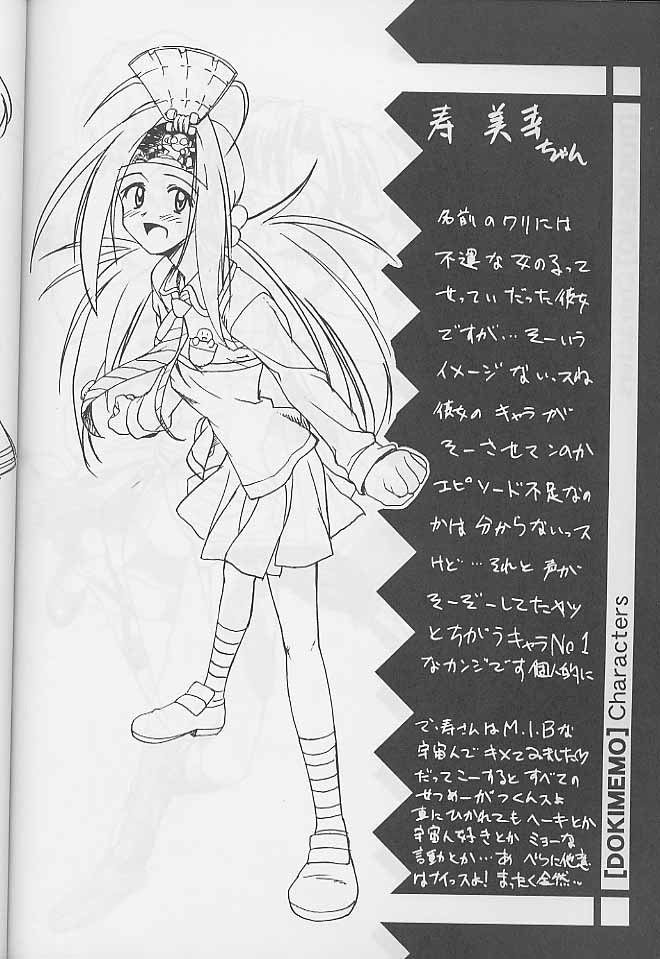 寿 美幸
ちゃん
名前のワリには
不運な女のるって
せってぃだった彼女
ですが…そーいう
イメージないっスね
彼女のキャラが
そーさせてンのか
エピソード不足なの
かは分からないっス
けど…それと声が
そーぞーしてたヤツ
とちがうキャラNo1
なカンジです個人的に
で、寿さんはM.I.Bな
宇宙人でキメてみましたッ
だってこーするとすべての
せつめーがつくんスよ
車にひかれてもヘーキとか
宇宙人好きとかミョーな
言動とか…あ べらに他意
はナイっスよ!まったく全然…
[DOKIMEMO] Characters